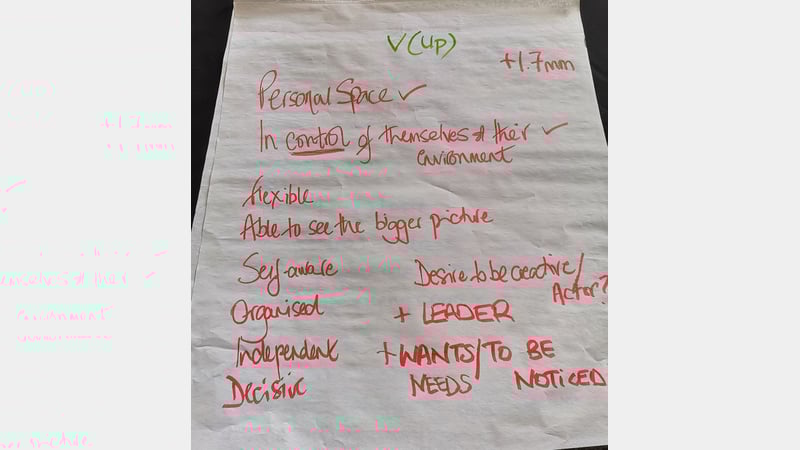 V (up)
+1.7mm
Personal Space ✓
In control of themselves & their ✓
environment
flexible
Able to see the bigger picture
Self-aware
Desire to be creative/
Actor?
Organised
+ LEADER
Independent
+ WANTS/ TO BE
Decisive
NEEDS NOTICED